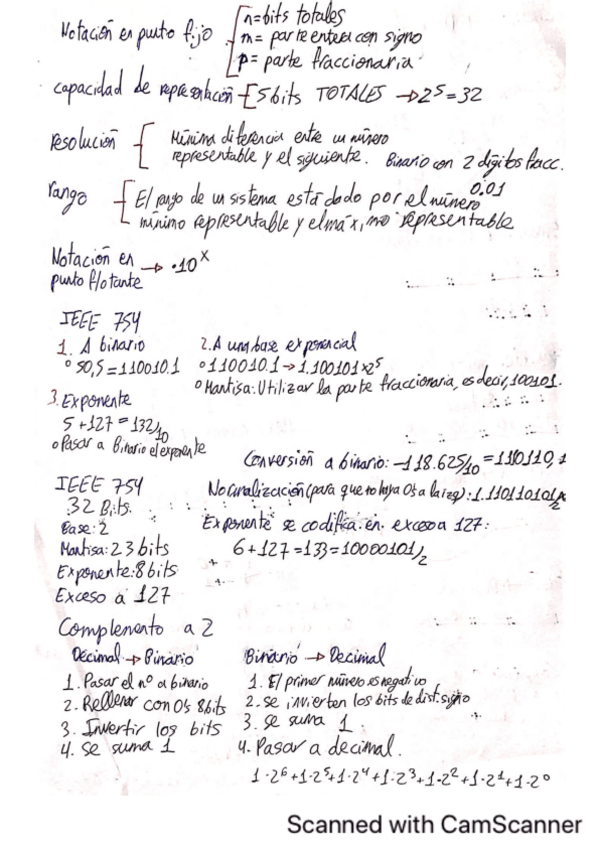 Notación en punto fijo
n=bits totales
m= parte entera con signo
p= parte fraccionaria
capacidad de representación
5 bits TOTALES → 2^5 = 32
resolución
Mínima diferencia entre un número
representable y el siguiente. Binario con 2 dígitos fracc.
0.01
rango
El rango de un sistema está dado por el número
mínimo representable y el máximo representable
Notación en
punto flotante → ·10^x
IEEE 754
1. A binario
° 50,5 = 110010.1
2. A una base exponencial
° 110010.1 → 1.100101x2^5
° Mantisa: Utilizar la parte fraccionaria, es decir, 100101.
3. Exponente
5 + 127 = 132/10
° Pasar a Binario el exponente
Conversión a binario: -118.625/10 = 110110,1
IEEE 754
32 Bits.
Base: 2
Mantisa: 23 bits
Exponente: 8 bits
Exceso a 127
Normalización (para que no haya 0s a la izq): 1.110110101
Exponente se codifica en exceso a 127:
6 + 127 = 133 = 10000101/2
Complemento a 2
Decimal → Binario
1. Pasar el nº a binario
2. Rellenar con 0s 8bits
3. Invertir los bits
4. Se suma 1
Binario → Decimal
1. El primer número es negativo
2. se invierten los bits de dist. signo
3. se suma 1
4. Pasar a decimal.
1·2^6+1·2^5+1·2^4+1·2^3+1·2^2+1·2^1+1·2^0
Scanned with CamScanner